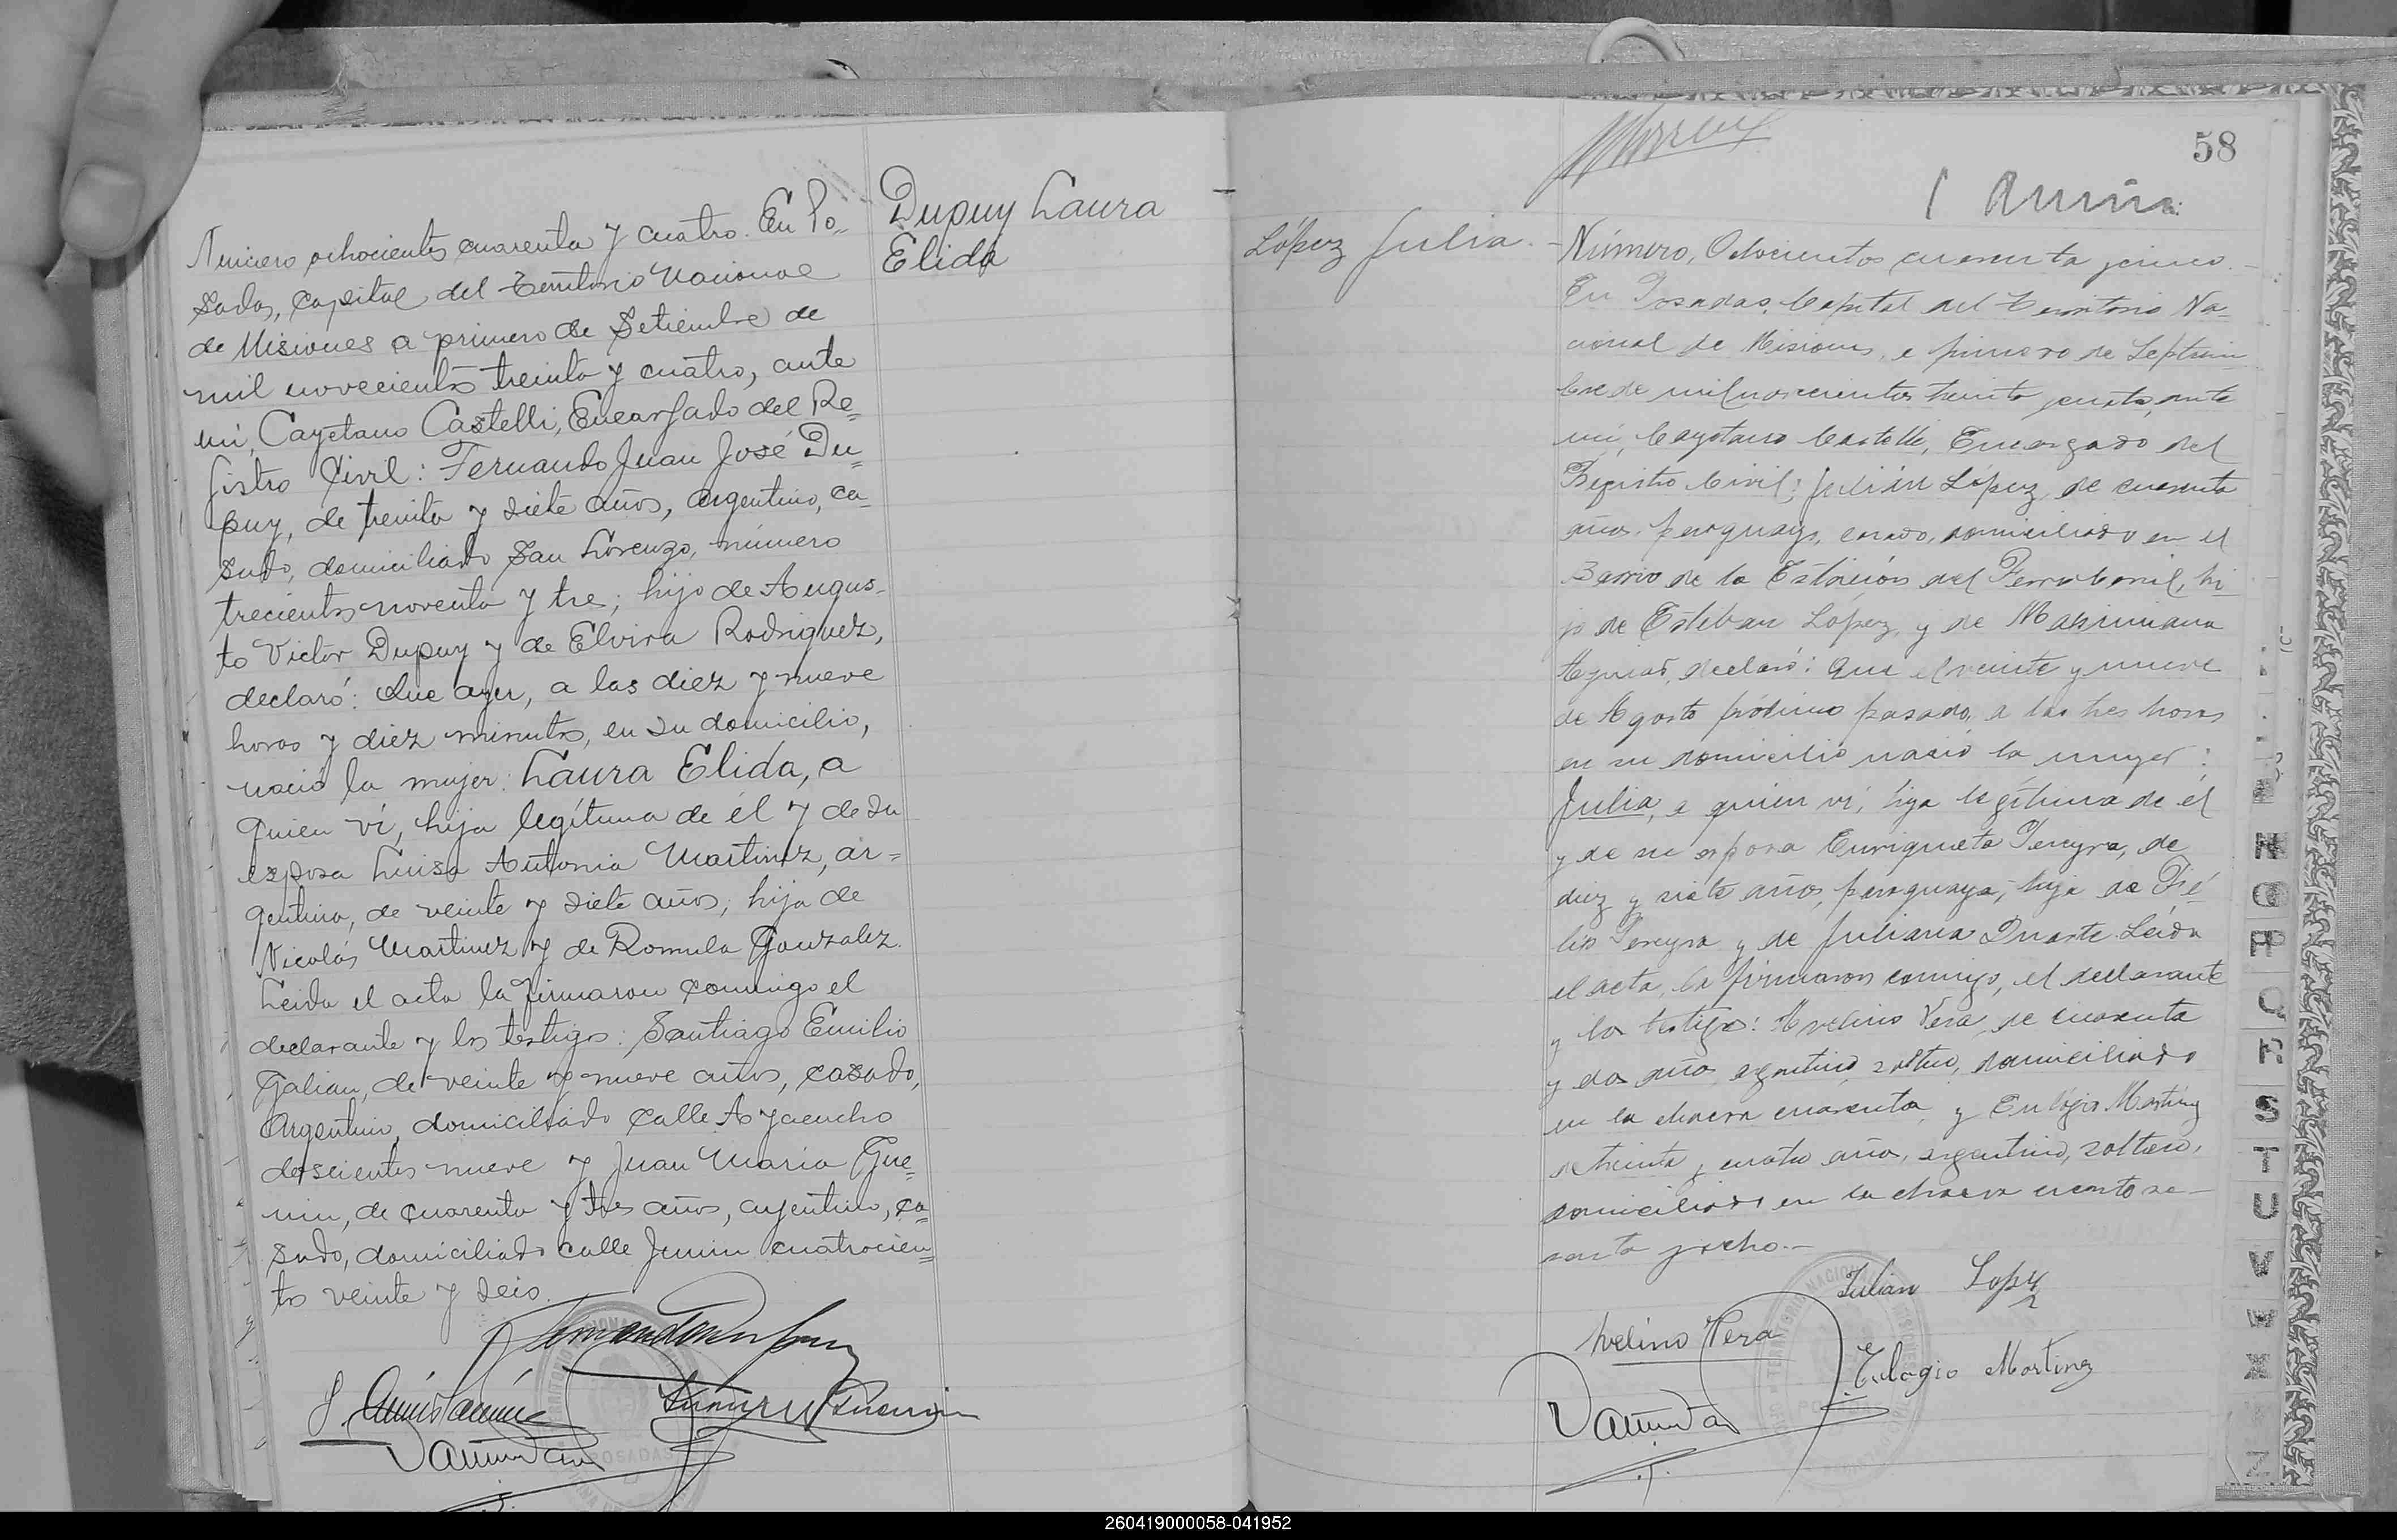 Dupuy Laura
Elida
Número ochocientos cuarenta y cuatro. En Po-
sadas, Capital del Territorio Nacional
de Misiones a primero de Setiembre de
mil novecientos treinta y cuatro, ante
mi, Cayetano Castelli, Encargado del Re-
gistro Civil: Fernando Juan José Du-
puy, de treinta y siete años, argentino, ca-
sado, domiciliado San Lorenzo, número
trecientos noventa y tre; hijo de Augus-
to Victor Dupuy y de Elvira Rodriguez,
declaró: Que ayer, a las diez y nueve
horas y diez minutos, en su domicilio,
nació la mujer: Laura Elida, a
quien ví, hija legítima de él y de su
esposa Luisa Antonia Martinez, ar=
gentina, de veinte y siete años, hija de
Nicolás Martinez y de Romula Gonzalez.
Leida el acta la firmaron conmigo el
declarante y los testigos: Santiago Emilio
Galian, de veinte y nueve años, casado,
Argentino, domiciliado calle Ayacucho
doscientos nueve y Juan Maria Gue-
nin, de cuarenta y tres años, argentino, ca-
sado, domiciliado calle Junin cuatrocien-
tos veinte y seis.
POSADAS
58
López Julia.-
Número, Ochocientos cuarenta y cinco.-
En Posadas, Capital del Territorio Na-
cional de Misiones, a primero de Septiem-
bre de mil novecientos treinta y cuatro, ante
mi, Cayetano Castelli, Encargado del
Registro Civil: Julián López, de cuarenta
años, paraguayo, casado, domiciliado en el
Barrio de la Estación del Ferro Carril, hi-
jo de Esteban López, y de Maximiana
declaró: Que el veinte y nueve
de Agosto próximo pasado, a las tres horas
en su domicilio nació la mujer:
Julia, a quien ví, hija legítima de él
y de su esposa Enriqueta Pereyra, de
diez y siete años, paraguaya, hija de Fé-
lix Pereyra y de Juliana Duarte. Leída
el acta, la firmaron conmigo, el declarante
y los testigos: Avelino Vera, de cuarenta
y dos años, argentino, soltero, domiciliado
en la chacra cuarenta, y Eulogio Martinez
de treinta y cuatro años, argentino, soltero,
domiciliado en la chacra ciento se-
senta y ocho.-
Julian Lopez
Avelino Vera
Eulogio Martinez
N
O
P
Q
R
S
T
U
V
W
X
Z
260419000058-041952